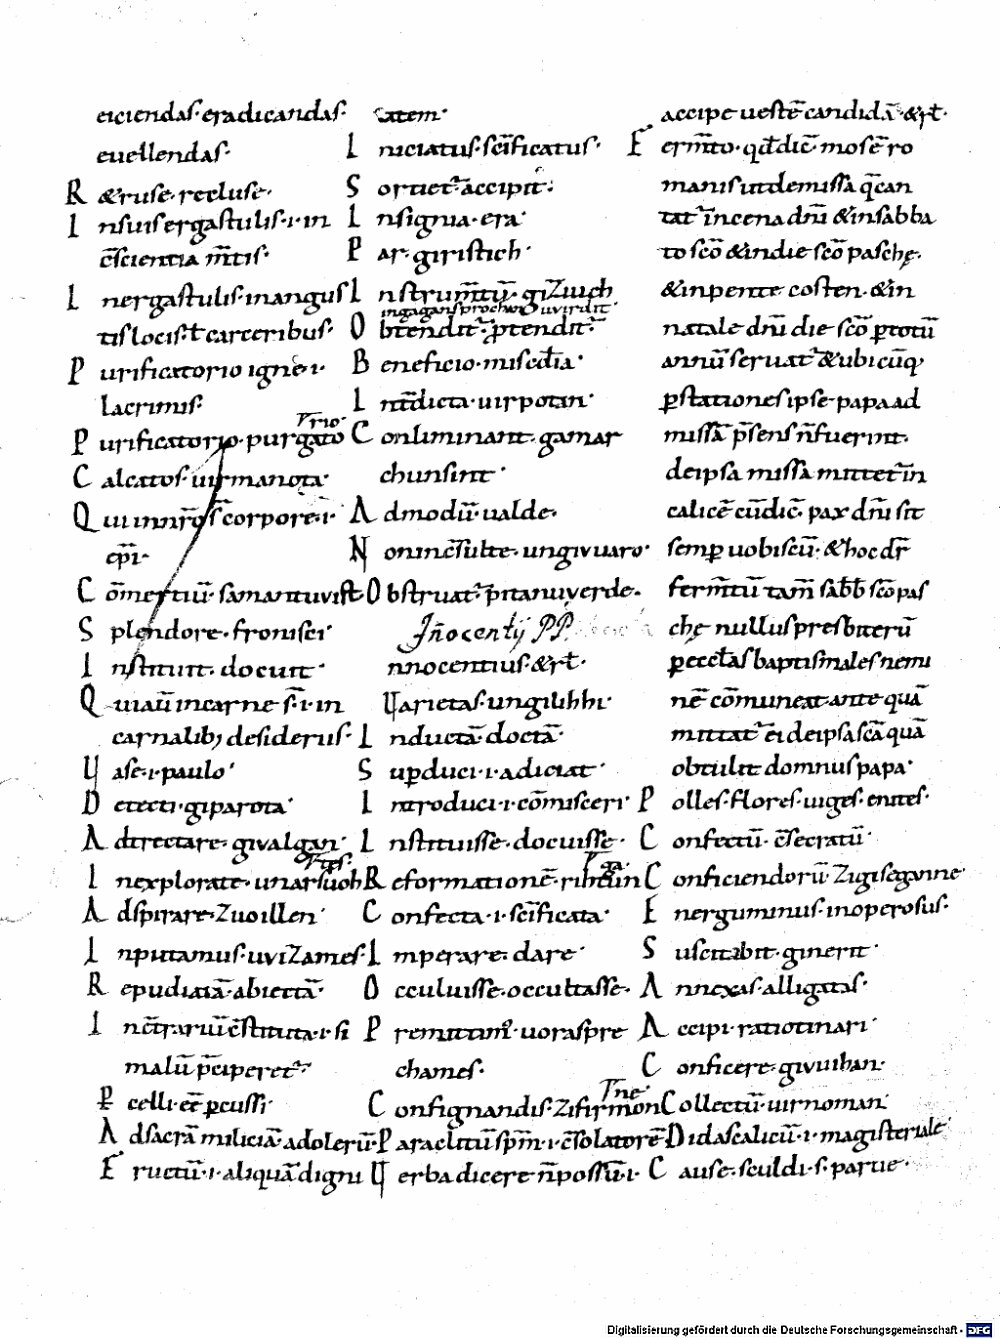 eiciendas· eradicandas·
euellendas·
R &ruse· recluse·
I nsuis ergastulis· i· in
c̄scientia m̄tis·
I nergastulis inangus
tis locis· ł carceribus·
P urificatorio igne· i·
lacrimis·
P urificatorio· purgato
rio·
C alcatos· uirmanota·
Q ui innr̄o s̄ corpore· i·
ep̄i·
C ōmertiū· samantuvist
S plendore· fronisci·
I nstituit· docuit·
Q uiaū incarne s̄· i· in
carnalib; desideriis·
U ase· i· paulo·
D etecti· giparota·
A dtrectare· givalgan·
I nexplorate· unarsuoh
tes·
A dspirare· Zuoillen·
I nputamus· uviZames·
R epudiatā· abiectā·
I nc̄trariū c̄stituta· i· si
malū p̄ciperet᷑·
P celli· eē ꝑcussi·
A dsacrā miliciā adolerū·
E ructū· i· aliquā digni
tatem·
I niciatus· sc̄ificatus·
S ortiet᷑· accipit·
I nsignia· era·
P ar· giristich·
I nstrum̄tū· giZiuch
ingagansprochan uvirdit
O btendit᷑· ꝓtendit᷑·
B eneficio· misc̄dia·
I nt̄dicta· uirpotan·
C onliminant· gamar
chunsint·
A dmodū· ualde·
N oninc̄sulte· ungivuaro·
O bstruat᷑· pitanuverde·
Jn̄ocentÿ PP.
I nnocentius· &rł·
Uarietas· ungilihhi·
I nductā· doctā·
S uꝑduci· i· adiciat·
I ntroduci· i· cōmisceri·
I nstituisse· docuisse·
R eformationē· rihtun
ga·
C onfecta· i· sc̄ificata·
I mperare· dare·
O cculuisse· occultasse·
P remittim᷒· uoraspre
chames·
C onsignandis· Zifirmon
ne·
P araclitū sp̄m· i· c̄solatorē·
U erba dicere n̄ possū· i·
accipe uestē candidā· &rł·
F erm̄to· qđdic̄ mosē ro
manis utdemissa q̄ can
tat᷑ incena dn̄i &insabba
to sc̄o &indie sc̄o pasche·
&inpente costen· &in
natale dn̄i die sc̄o ꝑtotū
annū seruat᷑ &ubicūq;
ꝑstationes ipse papa ad
missā p̄sens n̄fuerint·
deipsa missa mittet᷑ in
calicē cūdic̄· pax dn̄i sit
semꝑ uobiscū· &hoc dr̄
ferm̄tū tam̄ sabb̄ sc̄o pas
che nullus presbiterū
ꝑeccłas baptismales nemi
nē cōmunicat ante quā
mittat᷑ ei deipsa sc̄a quā
obtulit domnus papa·
P olles· flores· uiges· enites·
C onfectū· c̄secratū·
C onficiendorū· Zigiseganne·
E nerguminus· inoperosus·
S uscitabit· ginerit·
A nnexas· alligatas·
A ccipi· ratiotinari·
C onficere· givuihan·
C ollectū· uirnoman·
D idascalicū· i· magisteriale·
C ause· sculdi· s· parue·